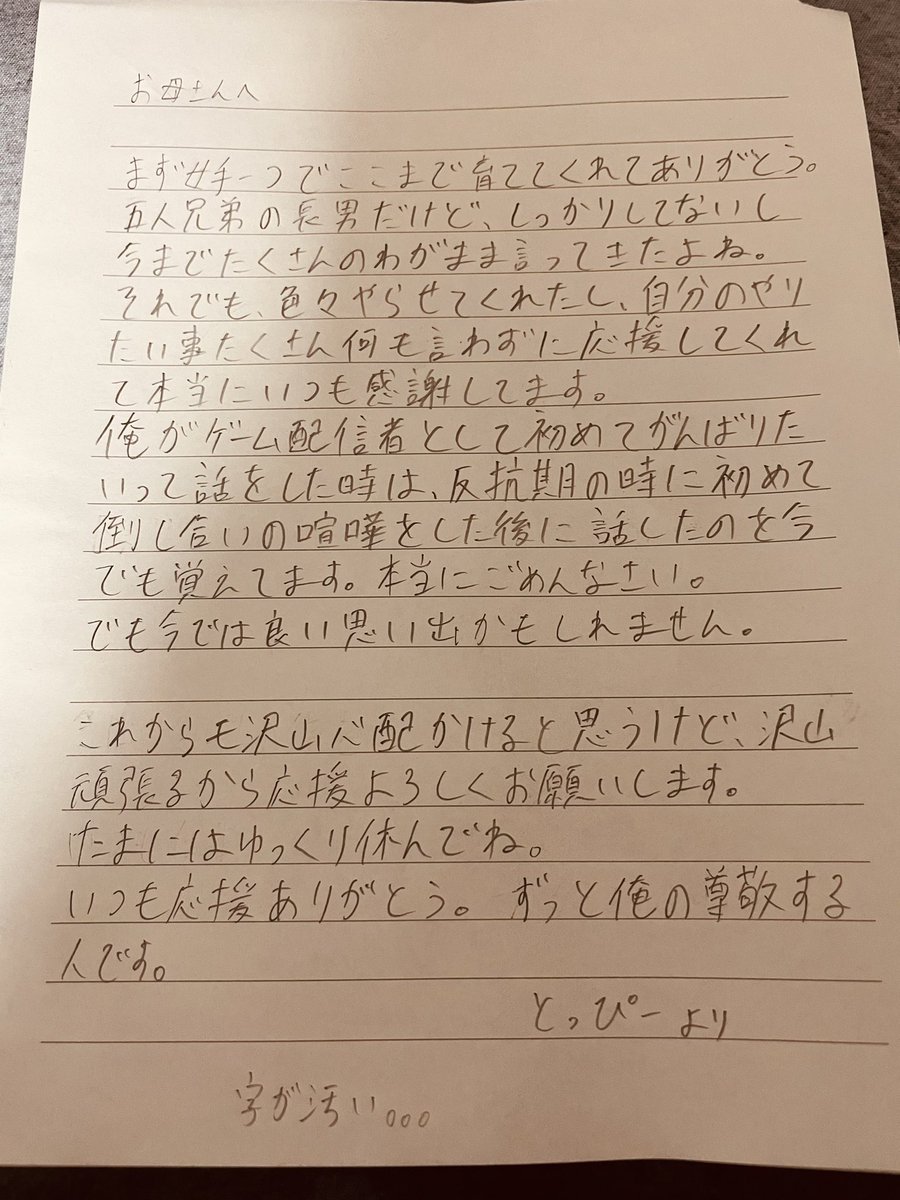 お母さんへ
まず女手一つでここまで育ててくれてありがとう。
五人兄弟の長男だけど、しっかりしてないし
今までたくさんのわがまま言ってきたよね。
それでも、色々やらせてくれたし、自分のやり
たい事たくさん何も言わずに応援してくれ
て本当にいつも感謝してます。
俺がゲーム配信者として初めてがんばりた
いって話をした時は、反抗期の時に初めて
倒し合いの喧嘩をした後に話したのを今
でも覚えてます。本当にごめんなさい。
でも今では良い思い出かもしれません。
これからも沢山心配かけると思うけど、沢山
頑張るから応援よろしくお願いします。
たまにはゆっくり休んでね。
いつも応援ありがとう。ずっと俺の尊敬する
人です。
とっぴーより
字が汚い。。。